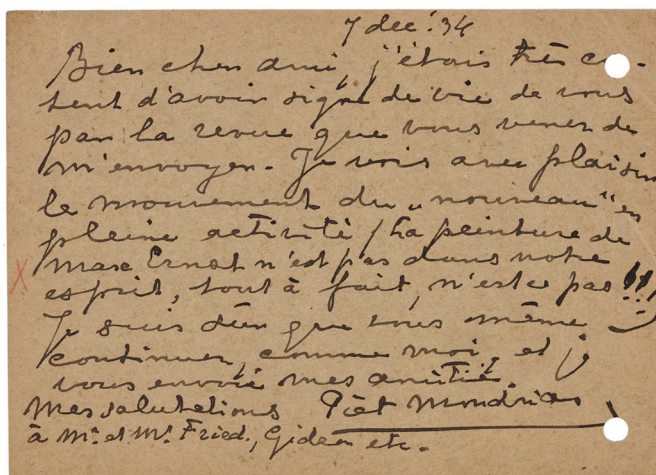 7 dec. '34
Bien cher ami, j'étais très con-
tent d'avoir signe de vie de vous
par la revue que vous venez de
m'envoyer. Je vois avec plaisir
le mouvement du „nouveau" en
pleine activité (La peinture de
Max Ernst n'est pas dans notre
esprit, tout à fait, n'est ce pas !!!)
Je suis sûr que vous même
continuez, comme moi, et je
vous envoie mes amitié.
Mes salutations Piet Mondrian
à Mr. et Mr. Fried., Gideon etc.